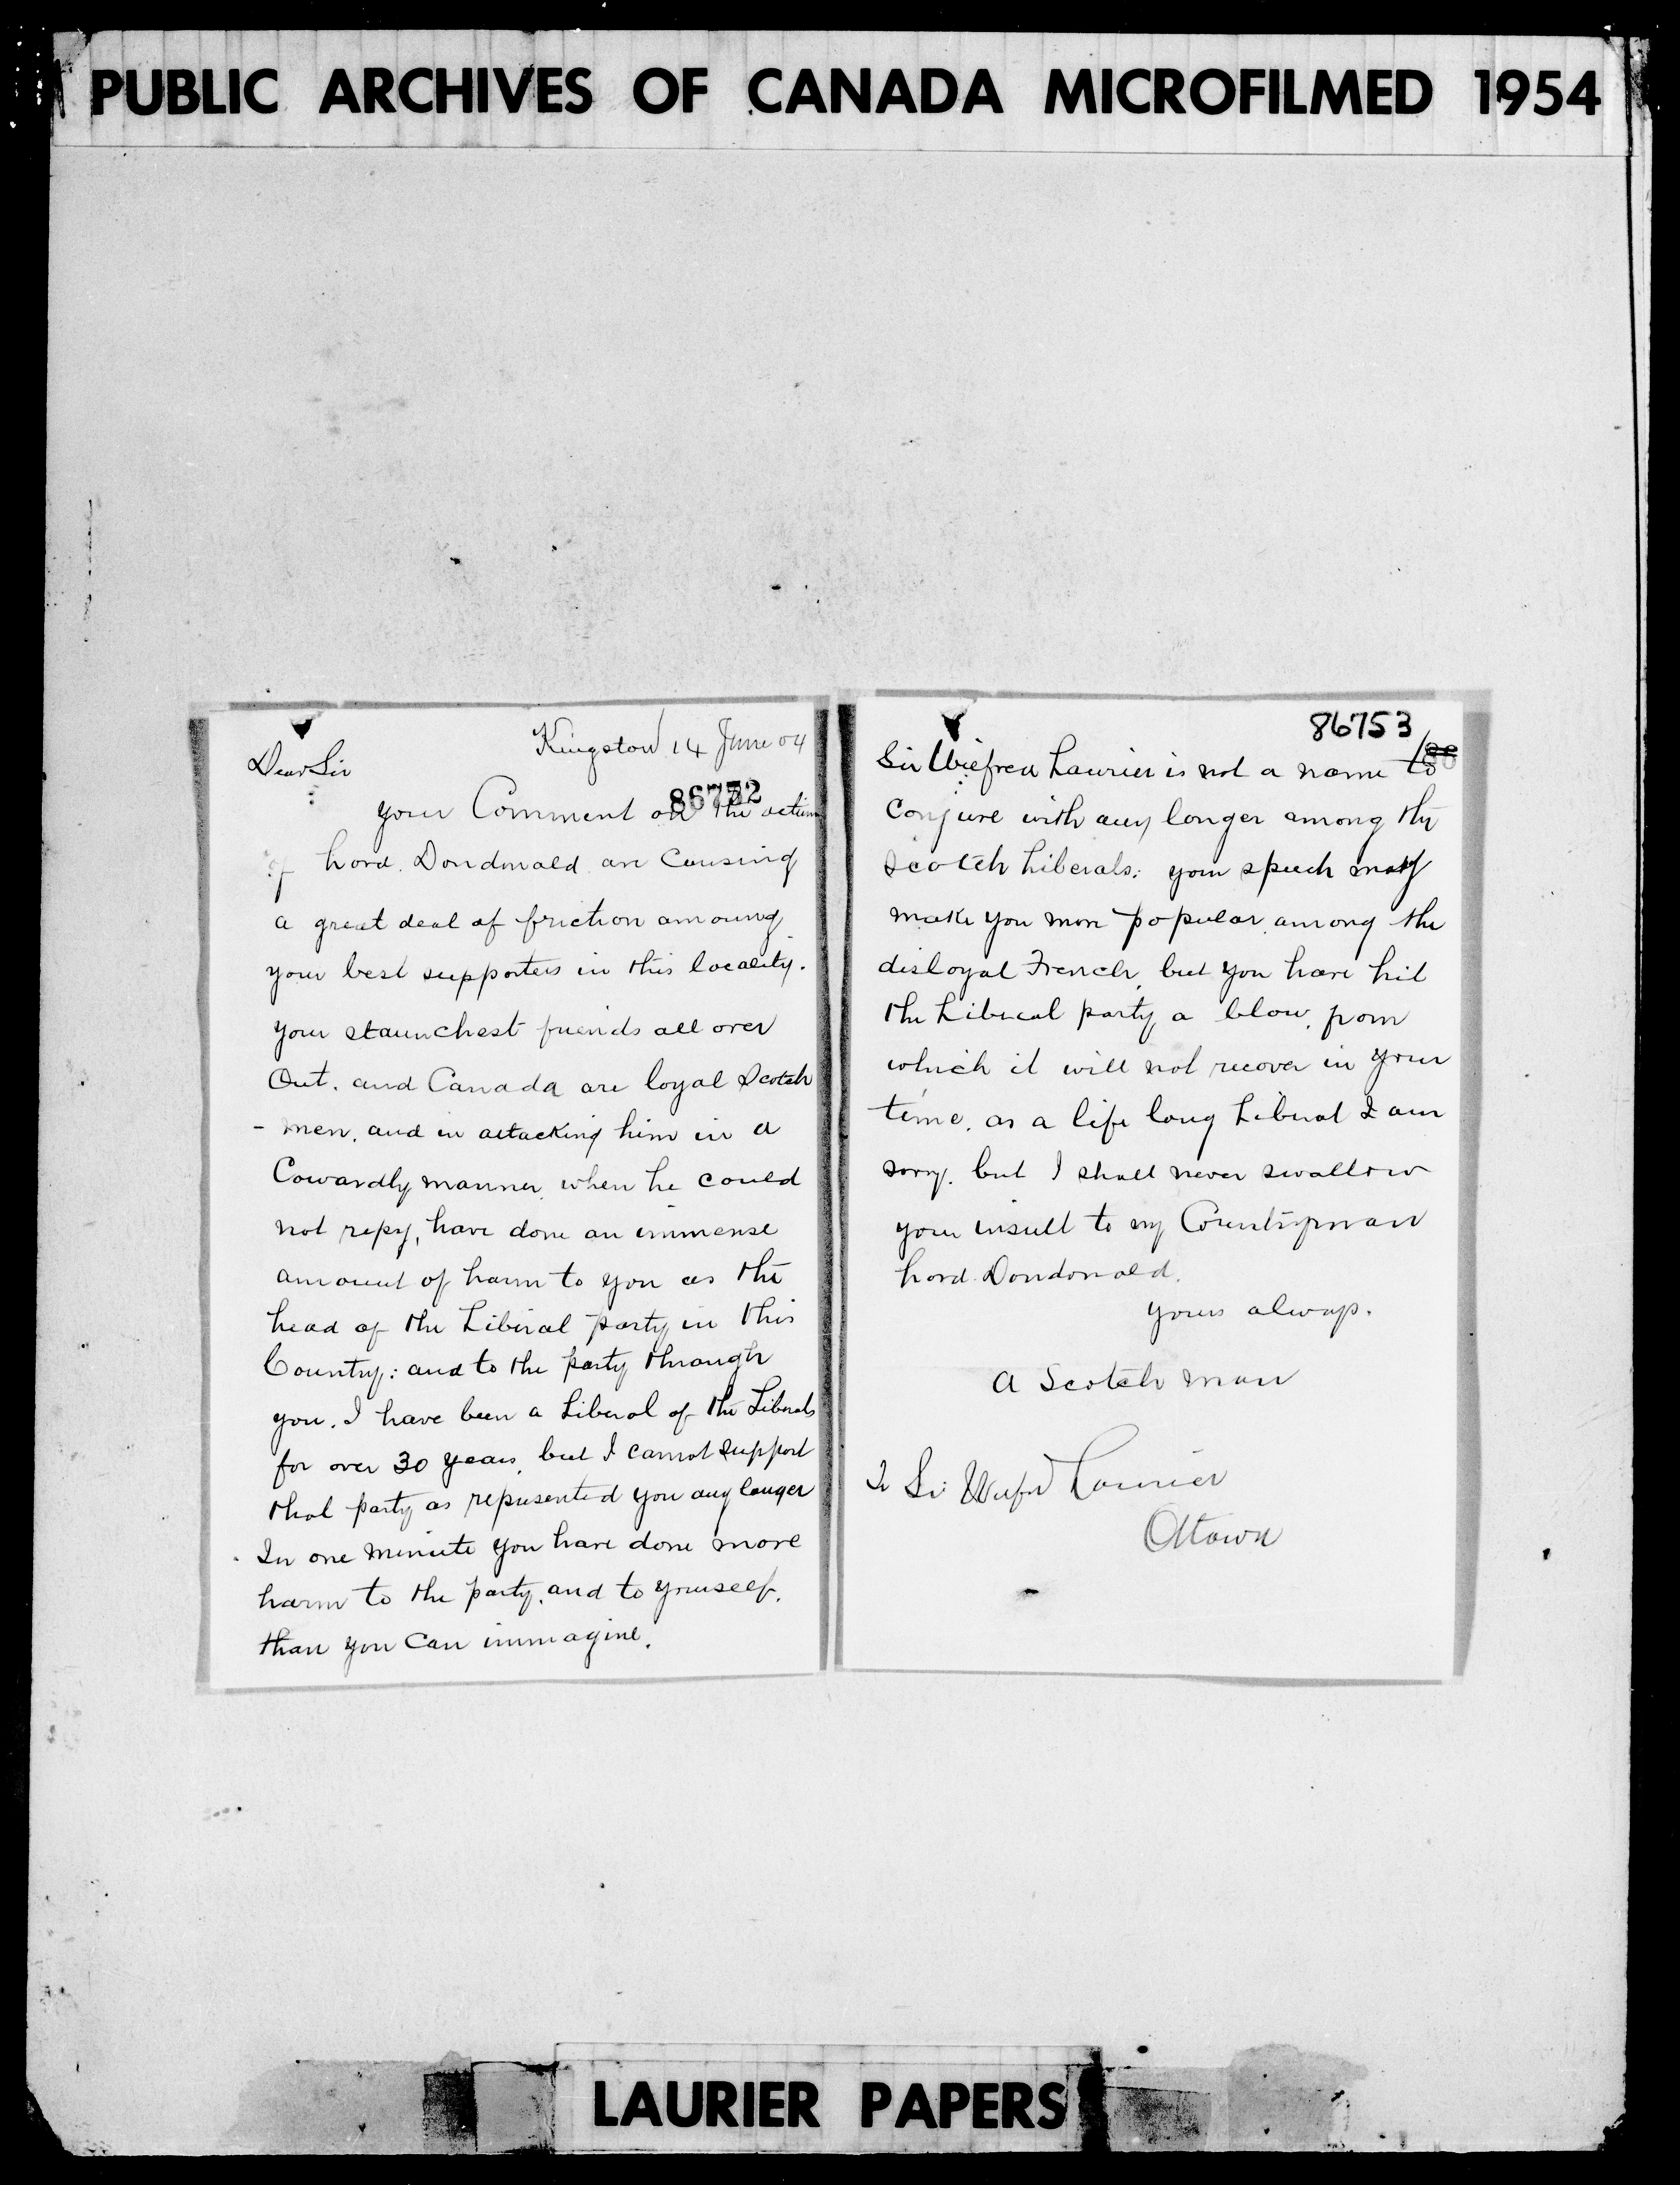 PUBLIC ARCHIVES OF CANADA MICROFILMED 1954
Kingston 14 June 04
Dear Sir
86752
your Comment on the action
of Lord Dondonald are Causing
a great deal of friction amoung
your best supporters in this locality.
your staunchest friends all over
Ont. and Canada are loyal Scotch
- men. and in attacking him in a
Cowardly manner when he could
not repy, have done an immense
amount of harm to you as the
head of the Liberal party in this
Country: and to the party through
you. I have been a Liberal of the Liberals
for over 30 years, but I cannot support
that party as repusented you any longer
In one minute you have done more
harm to the party, and to yourself,
than you can immagine.
86753
Sir Wilfred Laurier is not a name to
conjure with any longer among the
Scotch Liberals: your speech may
make you more popular among the
disloyal French, but you have hit
the Liberal party a blow, from
which it will not recover in your
time. as a life long Liberal I am
sorry. but I shall never swallow
your insult to my Countryman
Lord Dondonald.
yours always.
A Scotch man
To Sir Wilfrd Laurier
Ottawa
LAURIER PAPERS